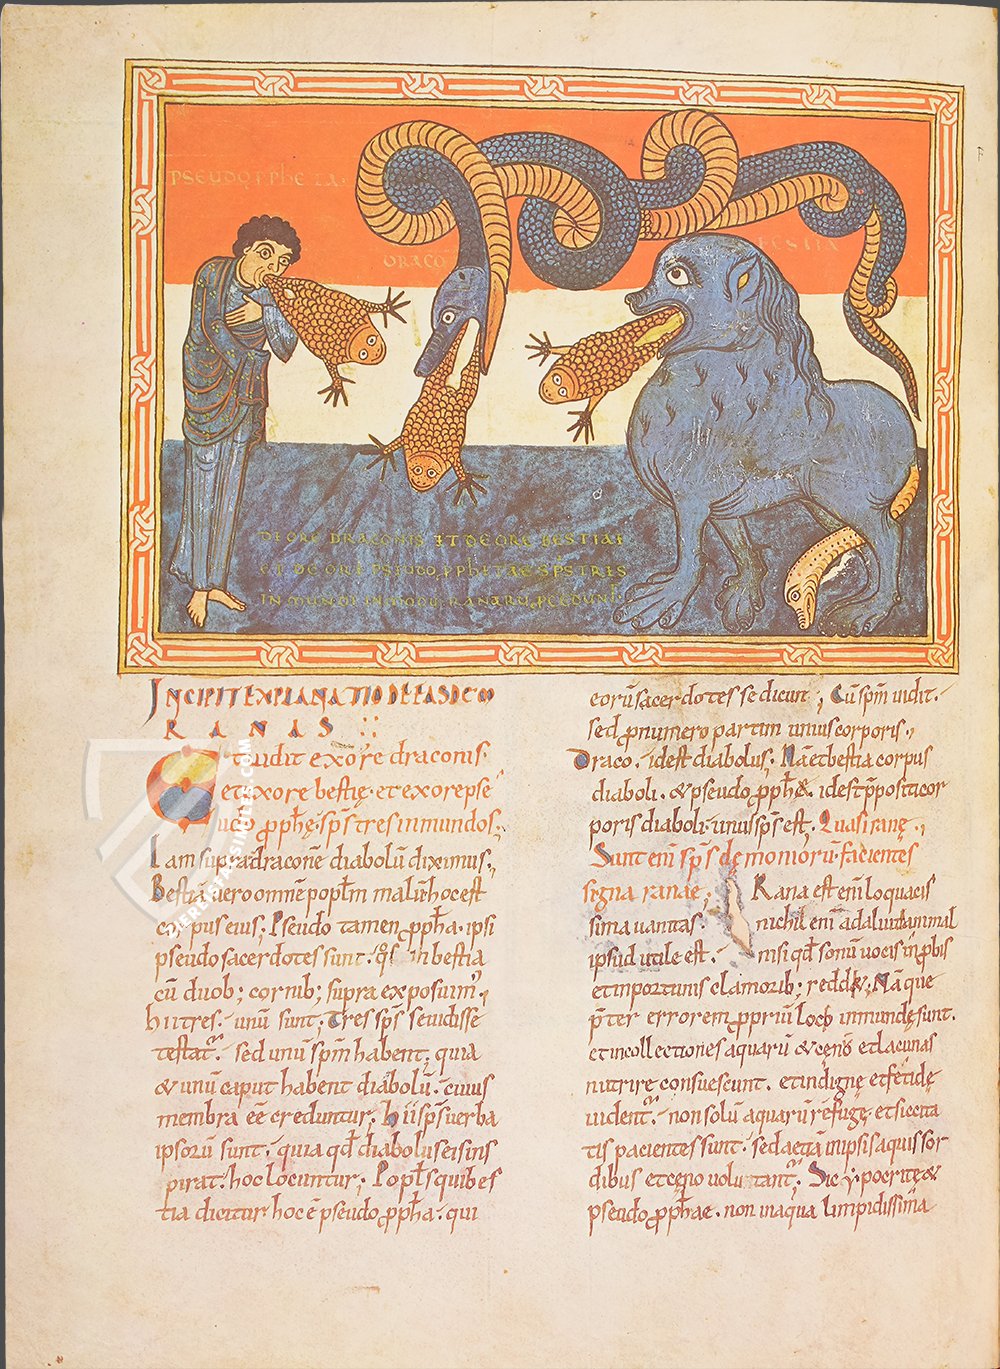 PSEUDO PPHETA
DRACO
BESTIA
DE ORE DRACONIS ET DE ORE BESTIAE
ET DE ORE PSEUDO PPHETAE SPS TRES
IN MUNDI IN MODU RANARU PCEDUNT
INCIPIT EXPLANATIO DE FASICO
RANAS
Et uidit ex ore draconis
et ex ore bestię · et ex ore pse
udo pphę · sps tres inmundos ;
Iam supra draconē diabolū diximus ;
Bestiā uero omnē poplm malū hoc est
corpus eius ; Pseudo tamen ppha · ipsi
pseudo sacerdotes sunt · in bestia
cū duob; cornib; supra exposuim
hii tres · unū sunt ; Tres sps se uidisse
testat · sed unū spm habent · quia
& unū caput habent diabolū · cuius
membra eē creduntur ; hii sps uerba
ipsorū sunt · quia qd diabolus eis ins
pirat · hoc locuntur ; Popls qui bes
tia dicitur hoc ē pseudo ppha · qui
eorū sacerdotes se dicunt ; Cū spm uidit ·
sed p numero partium unius corporis ·
Draco · id est diabolus · Nā et bestia corpus
diaboli · & pseudo pph& · id est ppositi cor
poris diaboli · unus sps est · Quasi ranę ·
Sunt eni sps demoniorū facientes
signa ranae ; Rana est eni loquacis
sima uanitas · nichil eni ad alunt animal
ipsud utile est · nisi qd sonū uocis inpbis
et inportunis clamorib; redd& · Nā que
pter errorem pprium locb inmundę sunt ·
et in collectiones aquarū & cęni et lacunas
nutrire consuescunt · et indignę et fetidę
uident · non solū aquarū refugę et siccita
tis pacientes sunt · sed aetiā in ipsis aquis sor
dibus et cęno uolutant · Sic ypocritę &
pseudo pphae · non in aqua limpidissima
ZIEREIS FAKSIMILES.COM